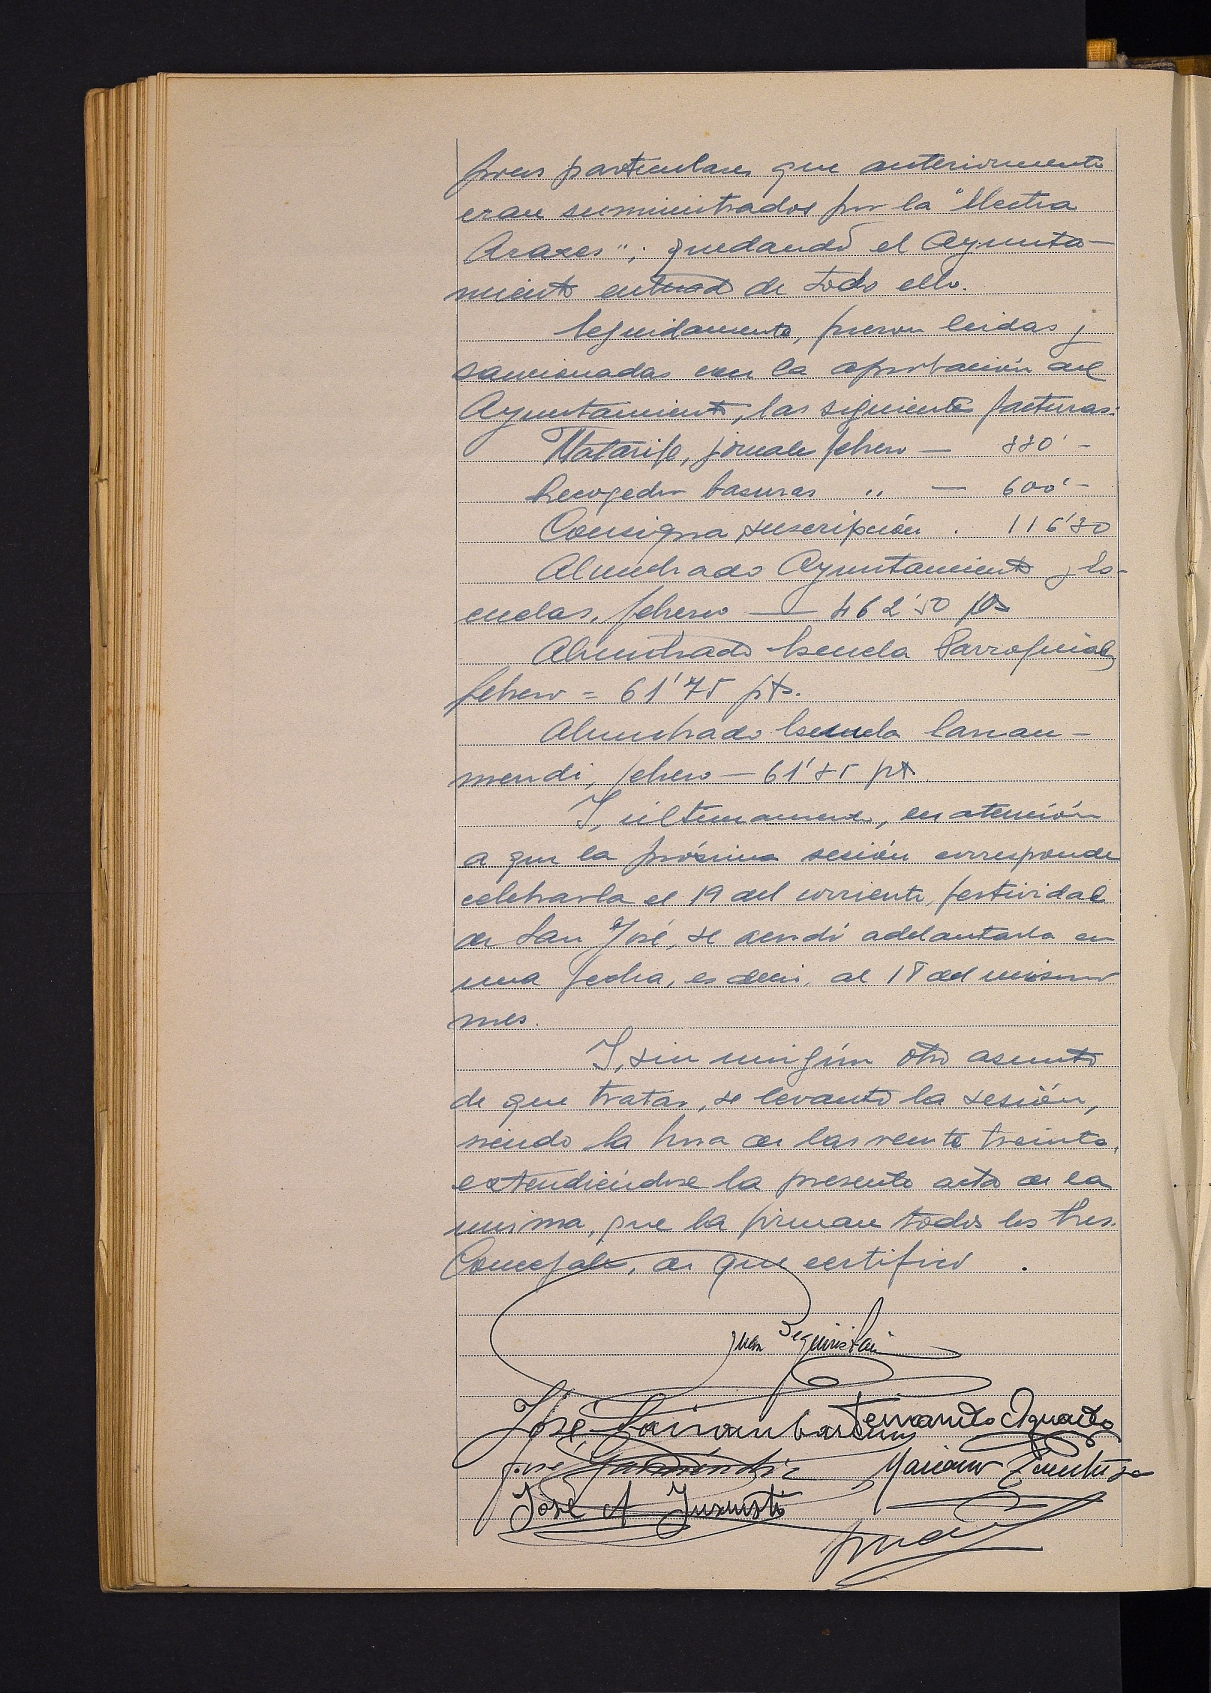 particulares que anteriormente
eran suministrados por la "Electra
Araxes"; quedando el Ayunta-
miento de todo ello.
Seguidamente, fueron leidas y
sancionadas con la aprobación del
Ayuntamiento, las siguientes facturas:
Matarife, jornales febrero — 880'-
Recogedor basuras " — 600'-
Consigna suscripción . 116'30
Alumbrado Ayuntamiento y Es-
cuelas, febrero — 462'50 pts
Alumbrado Escuela Parroquial,
febrero = 61'75 pts.
Alumbrado Escuela Larrau-
mendi, febrero — 61'85 pts
Y, ultimamente, en atención
a que la próxima sesión corresponde
celebrarla el 19 del corriente, festividad
de San José, se acordó adelantarla en
una fecha, es decir, al 18 del mismo
mes.
Y, sin ningún otro asunto
de que tratar, se levantó la sesión,
siendo la hora de las veinte treinta,
extendiéndose la presente acta de la
misma, que la firman todos los Sres.
Concejales, de que certifico .
Juan Beguiristain
José Fernando Aguado
José Mariano
José A